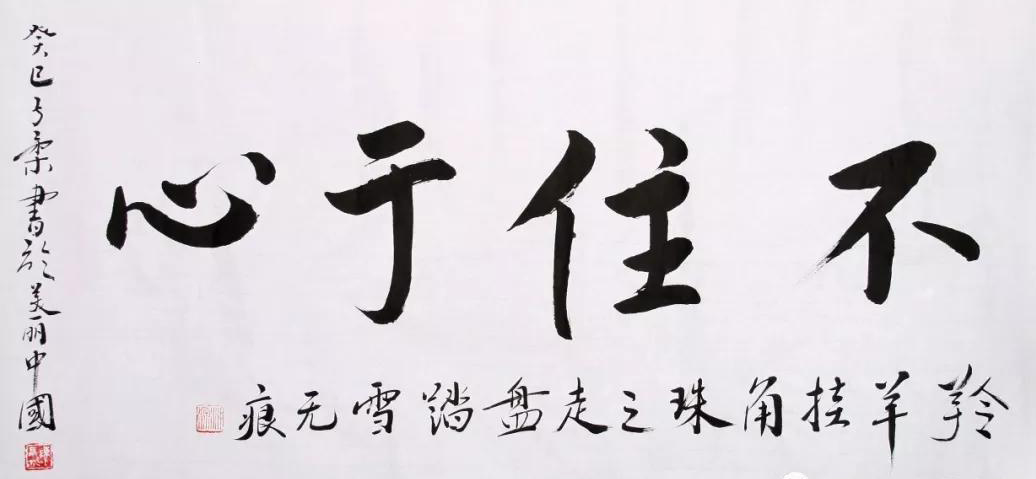 不住于心
羚羊挂角珠之走盘踏雪无痕
癸巳子柔書於美丽中國